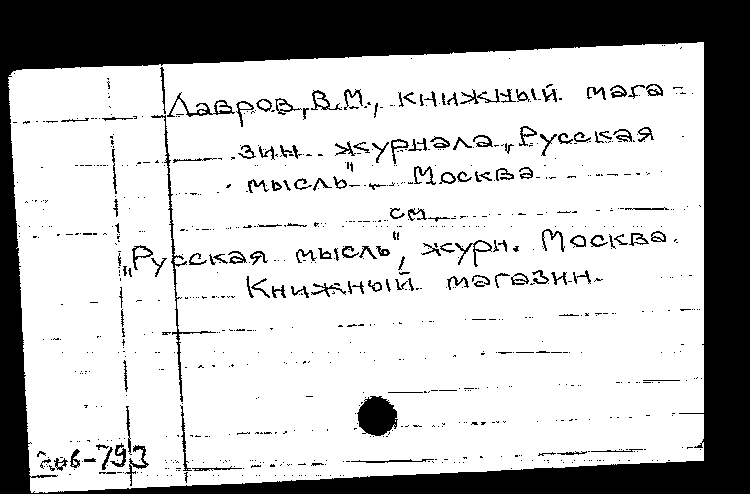 Лавров, В.М., книжный мага=
зин журнала „Русская
мысль", Москва
см.
„Русская мысль", журн. Москва.
Книжный магазин.
-793